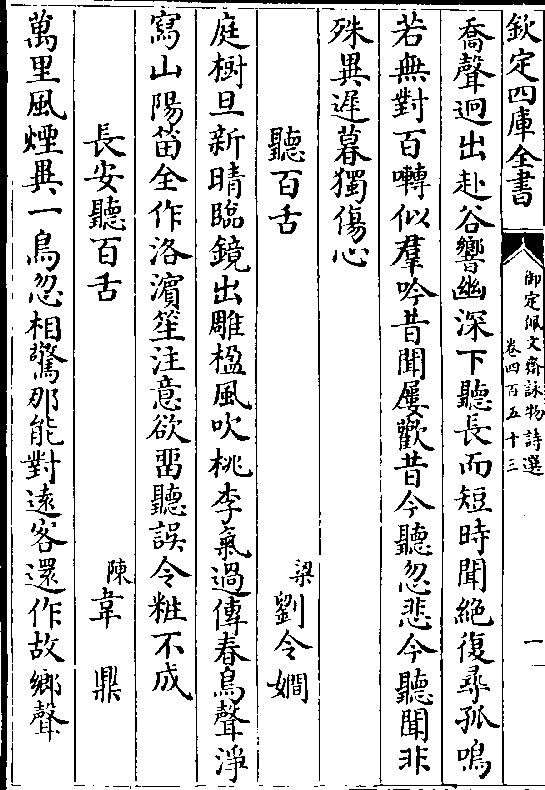 欽定四庫全書
御定佩文齋詠物詩選
卷四百五十三
一
喬聲迥出赴谷響幽深下聽長而短時聞絶復尋孤鳴
若無對百囀似羣吟昔聞屢歡昔今聽忽悲今聽聞非
殊異遲暮獨傷心
聽百舌
梁劉令嫺
庭樹旦新晴臨鏡出雕楹風吹桃李氣過傳春鳥聲淨
寫山陽笛全作洛濵笙注意欲畱聽誤令粧不成
長安聽百舌
陳韋鼎
萬里風煙異一鳥忽相驚那能對遠客還作故鄉聲